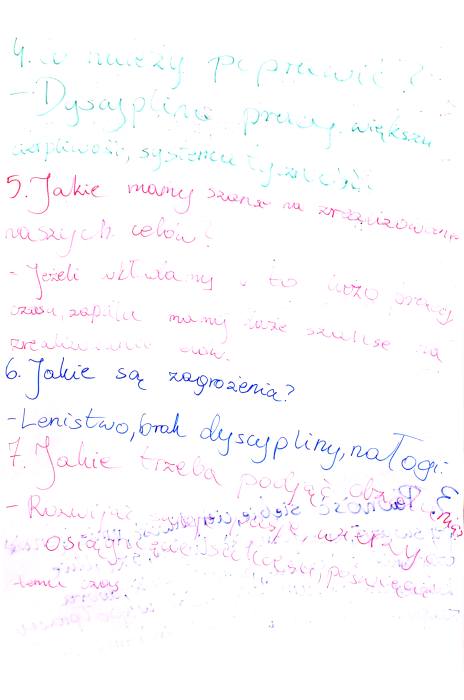 4. Co należy poprawić?
- Dyscyplina pracy, większa
cierpliwość, systematyczność
5. Jakie mamy szanse na zrealizowanie
naszych celów?
- Jeżeli włożymy w to dużo pracy
czasu, zapału mamy duże szanse na
zrealizowanie celów.
6. Jakie są zagrożenia?
- Lenistwo, brak dyscypliny, nałogi.
7. Jakie trzeba podjąć
- Rozwijać wierzyć w
osiągnięcie poświęcić
temu czas